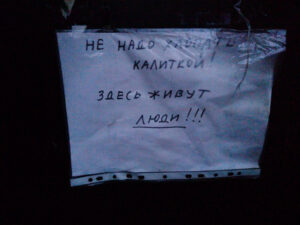 НЕ НАДО ХЛОПАТЬ
КАЛИТКОЙ!
ЗДЕСЬ ЖИВУТ
ЛЮДИ!!!